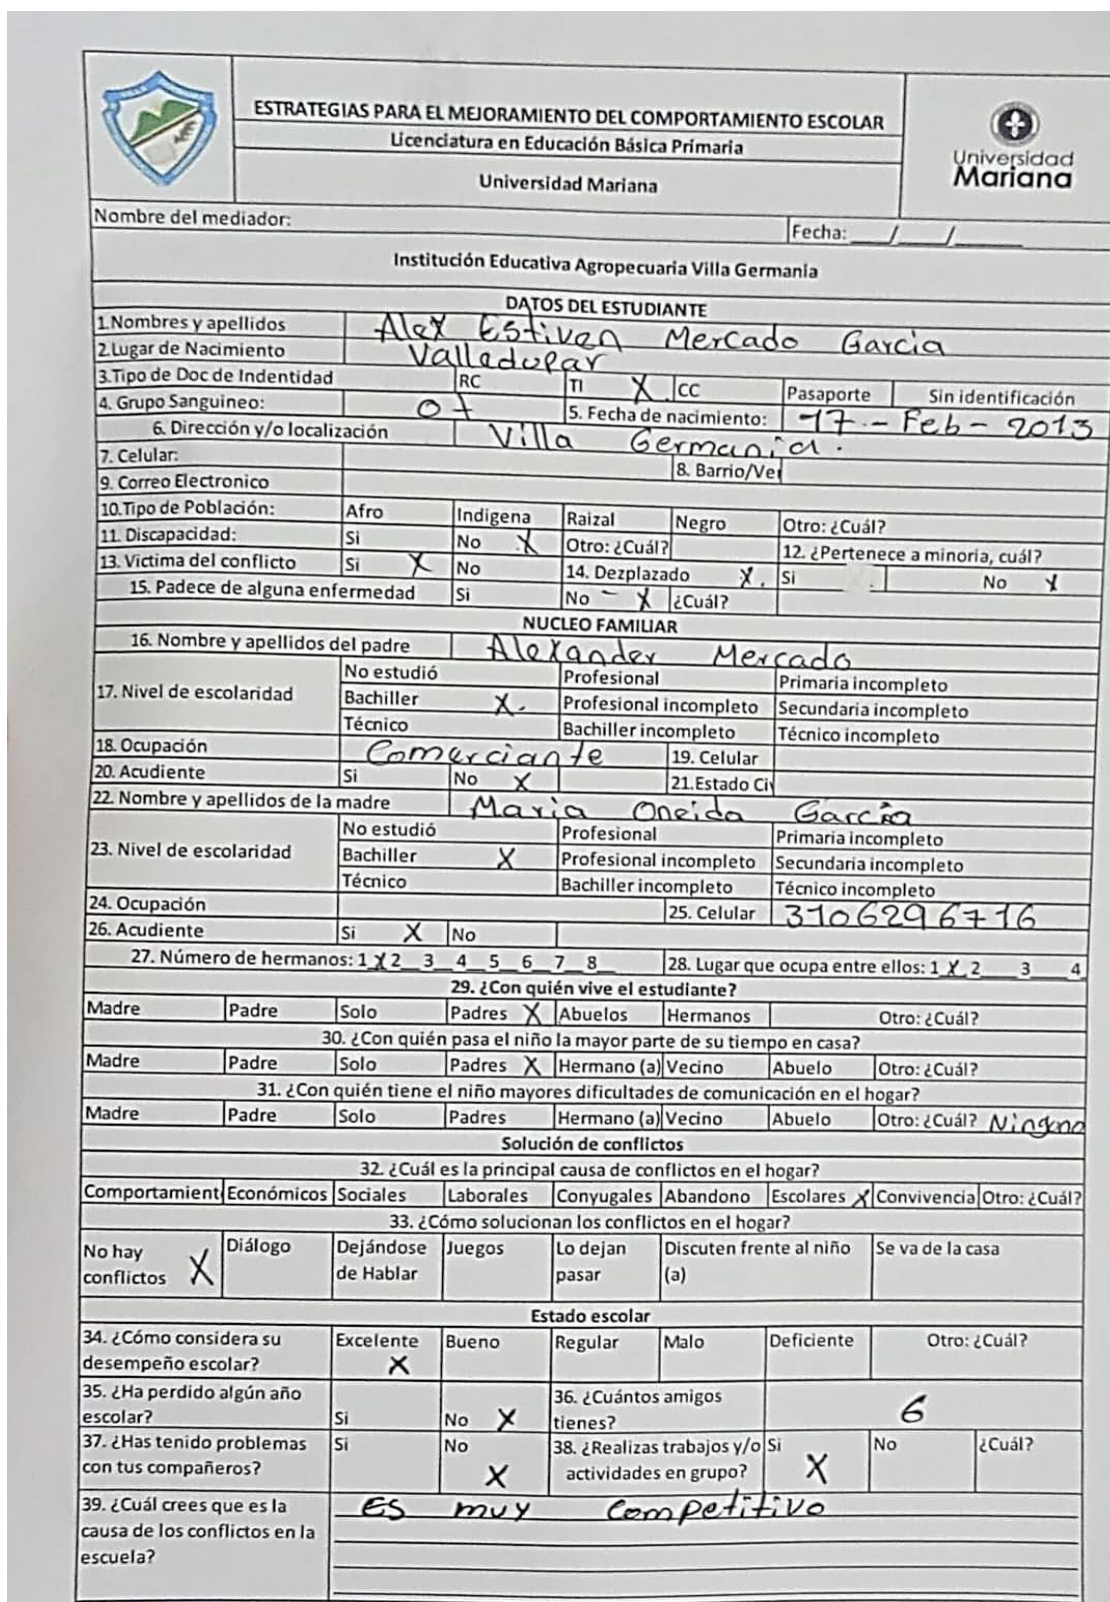 ESTRATEGIAS PARA EL MEJORAMIENTO DEL COMPORTAMIENTO ESCOLAR
Licenciatura en Educación Básica Primaria
Universidad Mariana
Universidad
Mariana
Nombre del mediador: Fecha: ___/___/_____
Institución Educativa Agropecuaria Villa Germania
DATOS DEL ESTUDIANTE
1.Nombres y apellidos Alex Estiven Mercado Garcia
2.Lugar de Nacimiento Valledupar
3.Tipo de Doc de Indentidad RC TI X CC Pasaporte Sin identificación
4. Grupo Sanguineo: O+ 5. Fecha de nacimiento: 17 - Feb - 2013
6. Dirección y/o localización Villa Germania.
7. Celular: 8. Barrio/Ver
9. Correo Electronico
10.Tipo de Población: Afro Indigena Raizal Negro Otro: ¿Cuál?
11. Discapacidad: Si No X Otro: ¿Cuál? 12. ¿Pertenece a minoria, cuál?
13. Victima del conflicto Si X No 14. Dezplazado X. Si No X
15. Padece de alguna enfermedad Si No - X ¿Cuál?
NUCLEO FAMILIAR
16. Nombre y apellidos del padre Alexander Mercado
17. Nivel de escolaridad No estudió Profesional Primaria incompleto
Bachiller X. Profesional incompleto Secundaria incompleto
Técnico Bachiller incompleto Técnico incompleto
18. Ocupación Comerciante 19. Celular
20. Acudiente Si No X 21.Estado Civ
22. Nombre y apellidos de la madre Maria Oneida Garcia
23. Nivel de escolaridad No estudió Profesional Primaria incompleto
Bachiller X Profesional incompleto Secundaria incompleto
Técnico Bachiller incompleto Técnico incompleto
24. Ocupación 25. Celular 3106296716
26. Acudiente Si X No
27. Número de hermanos: 1 X 2__3__4__5__6__7__8__ 28. Lugar que ocupa entre ellos: 1 X 2___3___4
29. ¿Con quién vive el estudiante?
Madre Padre Solo Padres X Abuelos Hermanos Otro: ¿Cuál?
30. ¿Con quién pasa el niño la mayor parte de su tiempo en casa?
Madre Padre Solo Padres X Hermano (a) Vecino Abuelo Otro: ¿Cuál?
31. ¿Con quién tiene el niño mayores dificultades de comunicación en el hogar?
Madre Padre Solo Padres Hermano (a) Vecino Abuelo Otro: ¿Cuál? Ninguno
Solución de conflictos
32. ¿Cuál es la principal causa de conflictos en el hogar?
Comportamient Económicos Sociales Laborales Conyugales Abandono Escolares X Convivencia Otro: ¿Cuál?
33. ¿Cómo solucionan los conflictos en el hogar?
No hay Diálogo Dejándose Juegos Lo dejan Discuten frente al niño Se va de la casa
conflictos X de Hablar pasar (a)
Estado escolar
34. ¿Cómo considera su Excelente Bueno Regular Malo Deficiente Otro: ¿Cuál?
desempeño escolar? X
35. ¿Ha perdido algún año 36. ¿Cuántos amigos
escolar? Si No X tienes? 6
37. ¿Has tenido problemas Si No 38. ¿Realizas trabajos y/o Si No ¿Cuál?
con tus compañeros? X actividades en grupo? X
39. ¿Cuál crees que es la Es muy competitivo
causa de los conflictos en la
escuela?